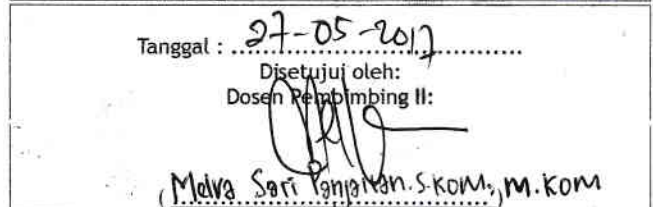 Tanggal : 27-05-2017
Disetujui oleh:
Dosen Pembimbing II:
(Melva Sari Panjaitan.S.KOM., M.KOM